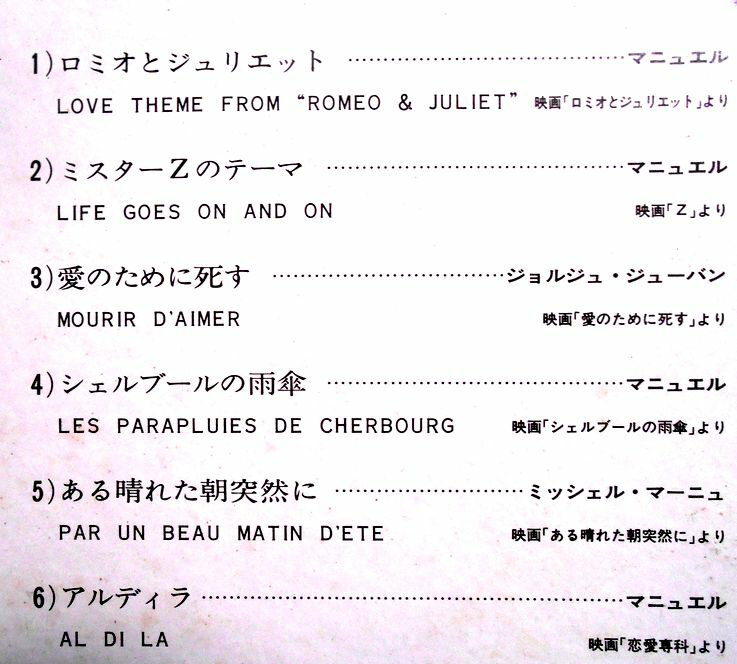 1)ロミオとジュリエット ································マニュエル
LOVE THEME FROM “ROMEO & JULIET” 映画「ロミオとジュリエット」より
2)ミスターZのテーマ ···································マニュエル
LIFE GOES ON AND ON 映画「Z」より
3)愛のために死す ···························ジョルジュ・ジューバン
MOURIR D'AIMER 映画「愛のために死す」より
4)シェルブールの雨傘 ···································マニュエル
LES PARAPLUIES DE CHERBOURG 映画「シェルブールの雨傘」より
5)ある晴れた朝突然に ······················ミッシェル・マーニュ
PAR UN BEAU MATIN D'ETE 映画「ある晴れた朝突然に」より
6)アルディラ ·················································マニュエル
AL DI LA 映画「恋愛専科」より